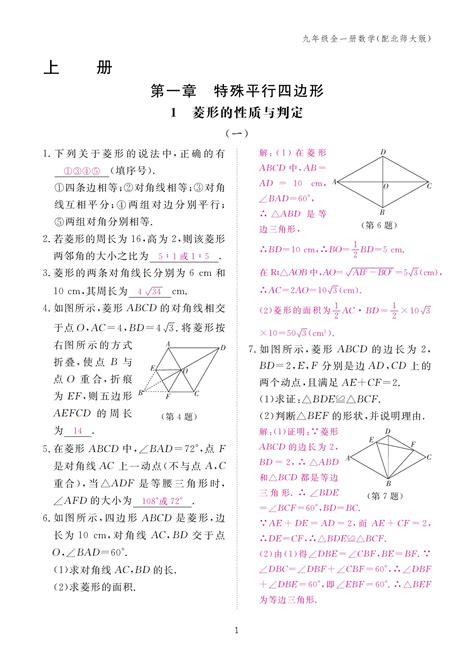 九年级全一册数学(配北师大版)
上 册
第一章 特殊平行四边形
1 菱形的性质与判定
(一)
1. 下列关于菱形的说法中,正确的有
①③④⑤ (填序号).
①四条边相等;②对角线相等;③对角
线互相平分;④两组对边分别平行;
⑤两组对角分别相等.
2. 若菱形的周长为16,高为2,则该菱形
两邻角的大小之比为 5∶1或1∶5 .
3. 菱形的两条对角线长分别为 6 cm 和
10 cm,其周长为 4√34 cm.
4. 如图所示,菱形 ABCD 的对角线相交
于点O,AC=4,BD=4√3. 将菱形按
右图所示的方式
折叠,使点 B 与
点 O 重合,折痕
为EF,则五边形
AEFCD 的周长
为 14 .
A
D
E
O
B
F
C
(第 4 题)
5. 在菱形 ABCD 中,∠BAD=72°,点 F
是对角线 AC 上一动点(不与点 A,C
重合),当△ADF 是等腰三角形时,
∠AFD的大小为 108°或72° .
6. 如图所示,四边形 ABCD 是菱形,边
长为 10 cm,对角线 AC,BD 交于点
O,∠BAD=60°.
(1)求对角线 AC,BD 的长.
(2)求菱形的面积.
解:(1)在菱形
ABCD 中,AB=
AD = 10 cm,
∠BAD=60°,
∴ △ABD 是等
边三角形,
D
A
O
C
B
(第 6 题)
∴BD=10 cm,∴BO=1/2BD=5 cm.
在Rt△AOB中,AO=√AB²−BO²=5√3(cm),
∴AC=2AO=10√3(cm).
(2)菱形的面积为1/2AC·BD=1/2×10√3
×10=50√3(cm²).
7. 如图所示,菱形 ABCD 的边长为 2,
BD=2,E,F 分别是边 AD,CD 上的
两个动点,且满足 AE+CF=2.
(1)求证:△BDE≌△BCF.
(2)判断△BEF的形状,并说明理由.
解:(1)证明:∵菱形
ABCD 的边长为 2,
BD = 2,∴ △ABD
和△BCD 都是等边
三角形. ∴ ∠BDE
=∠BCF=60°,BD=BC.
D
E
F
A
C
B
(第 7 题)
∵AE + DE = AD = 2,而 AE + CF = 2,
∴DE=CF,∴△BDE≌△BCF.
(2)由(1)得∠DBE=∠CBF,BE=BF.∵
∠DBC=∠DBF+∠CBF=60°,∴∠DBF
+∠DBE=60°,即∠EBF=60°,∴△BEF
为等边三角形.
1